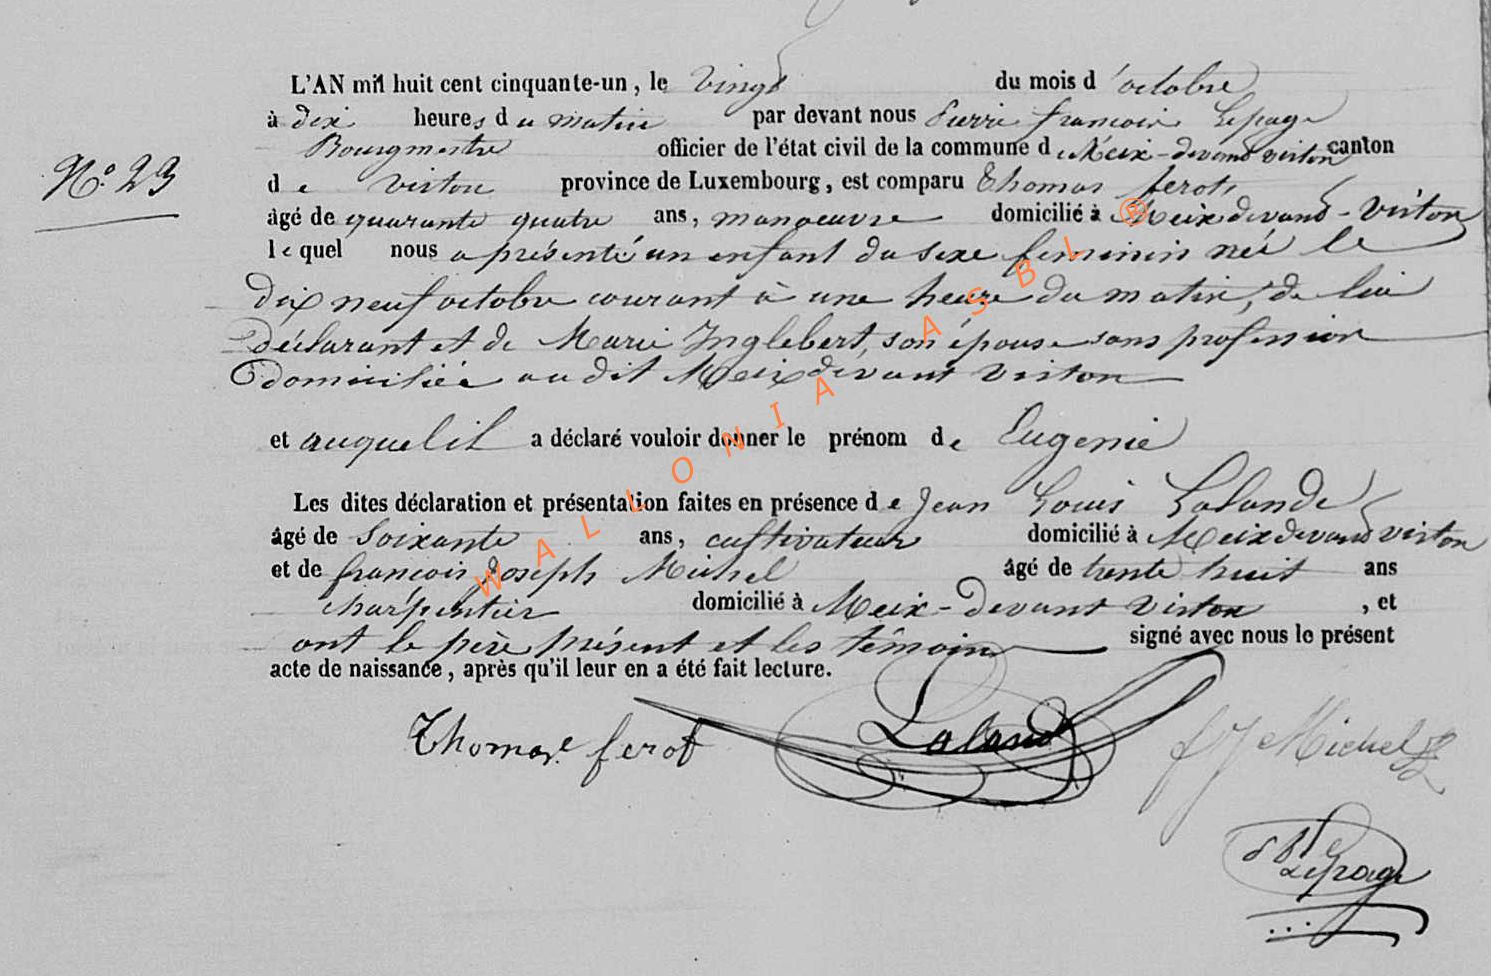 L'AN mil huit cent cinquante-un, le vingt du mois d'octobre
à dix heures du matin par devant nous Pierre françois Lepage
Bourgmestre officier de l'état civil de la commune de Meix-devant virton canton
N° 23
de virton province de Luxembourg, est comparu Thomas ferot,
âgé de quarante quatre ans, manoeuvre domicilié à Meix devant-Virton
lequel nous a présenté un enfant du sexe feminin née le
dix neuf octobre courant à une heure du matin, de lui
déclarant et de Marie Inglebert, son épouse sans profession
domiciliée au dit Meix devant Virton
et auquel il a déclaré vouloir donner le prénom de Eugenie
Les dites déclaration et présentation faites en présence de Jean Louis Lalande
âgé de soixante ans, cultivateur domicilié à Meix devant virton
et de françois joseph Michel âgé de trente huit ans
charpentier domicilié à Meix-devant Virton, et
ont le père présent et les témoins signé avec nous le présent
acte de naissance, après qu'il leur en a été fait lecture.
Thomas ferot Laland fJ Michel
Lepage
WALLONIA ASBL ®